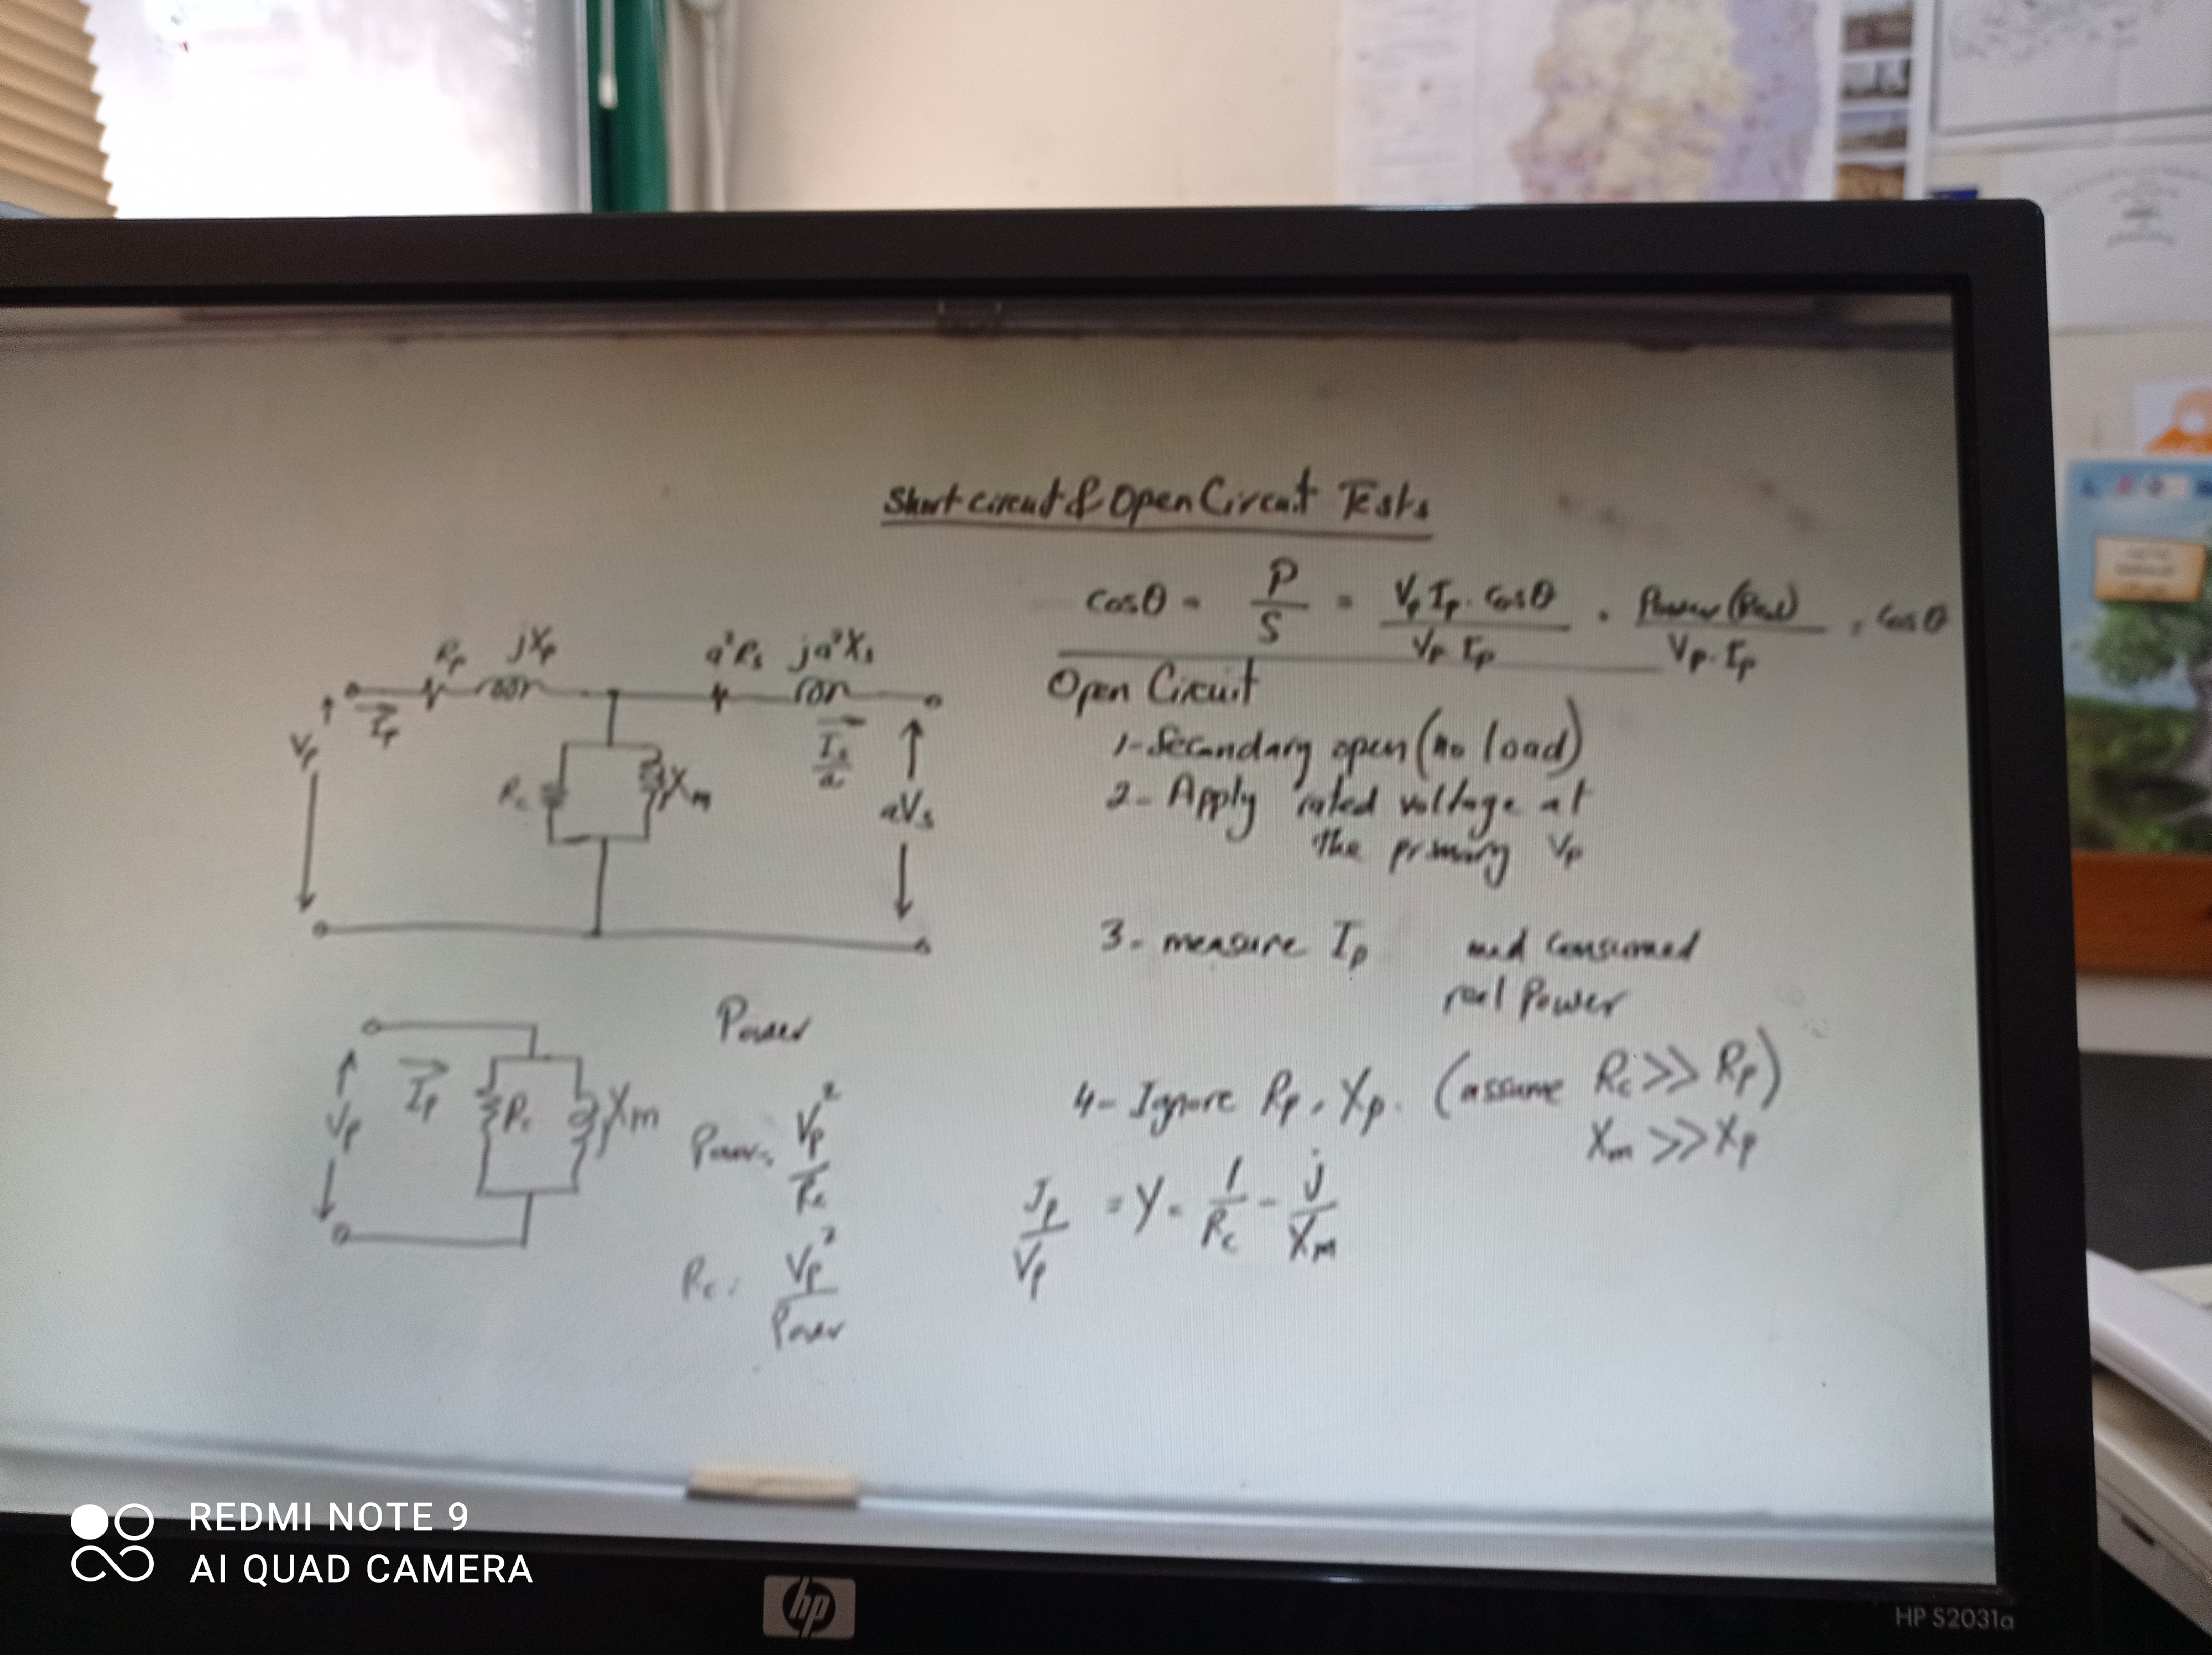 Short circuit & Open Circuit Tests
cosθ = P/S = Vp Ip . cosθ / Vp . Ip = Power (Real) / Vp . Ip = cosθ
Rp jXp a²Rs ja²Xs
Ip
Vp
Rc Xm
Is/a
aVs
Open Circuit
1- Secondary open (no load)
2- Apply rated voltage at
the primary Vp
3- measure Ip and consumed
real Power
4- Ignore Rp, Xp. (assume Rc >> Rp)
Xm >> Xp
Ip/Vp = Y = 1/Rc - j/Xm
Ip
Vp
Rc Xm
Power
Power = Vp²/Rc
Rc = Vp²/Power
REDMI NOTE 9
AI QUAD CAMERA
hp
HP S2031a